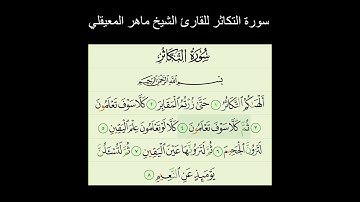 سورة التكاثر للقارئ الشيخ ماهر المعيقلي
سُورَةُ التَّكَاثُرِ
بِسْمِ اللَّهِ الرَّحْمَٰنِ الرَّحِيمِ
أَلْهَىٰكُمُ التَّكَاثُرُ ١ حَتَّىٰ زُرْتُمُ الْمَقَابِرَ ٢ كَلَّا سَوْفَ تَعْلَمُونَ
٣ ثُمَّ كَلَّا سَوْفَ تَعْلَمُونَ ٤ كَلَّا لَوْ تَعْلَمُونَ عِلْمَ الْيَقِينِ ٥
لَتَرَوُنَّ الْجَحِيمَ ٦ ثُمَّ لَتَرَوُنَّهَا عَيْنَ الْيَقِينِ ٧ ثُمَّ لَتُسْأَلُنَّ
يَوْمَئِذٍ عَنِ النَّعِيمِ ٨